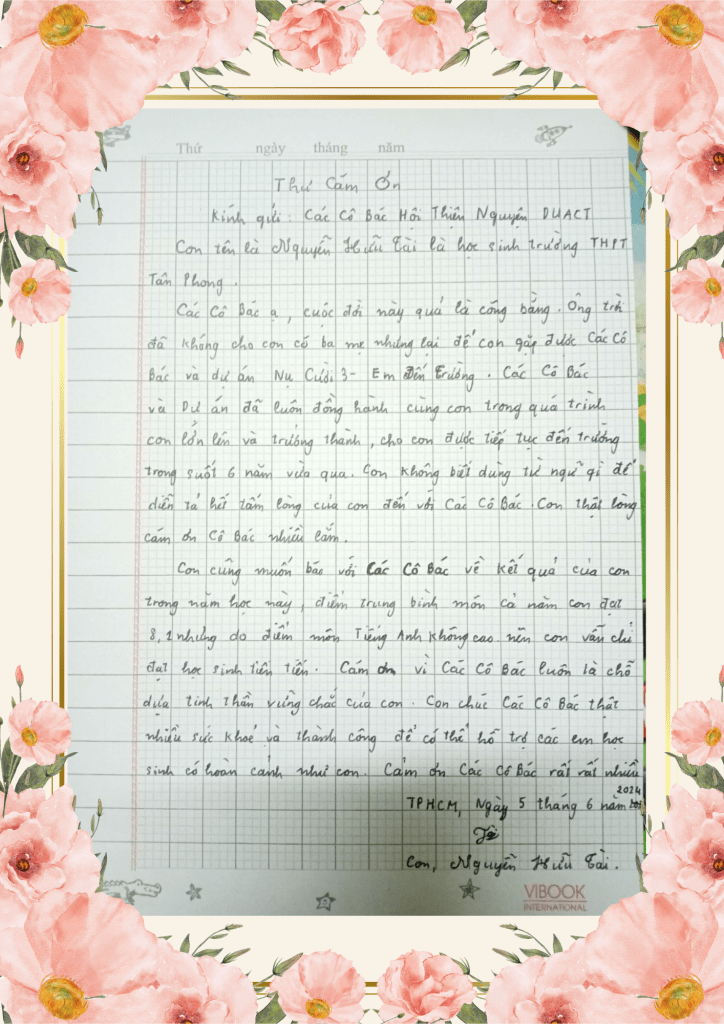 Thứ ngày tháng năm
Thư Cám Ơn
Kính gửi: Các Cô Bác Hội Thiện Nguyện DUACT
Con tên là Nguyễn Hữu Tài là học sinh trường THPT
Tân Phong.
Các Cô Bác ạ, cuộc đời này quả là công bằng. Ông trời
đã không cho con có ba mẹ nhưng lại để con gặp được Các Cô
Bác và dự án Nụ Cười 3- Em Đến Trường. Các Cô Bác
và Dự án đã luôn đồng hành cùng con trong quá trình
con lớn lên và trưởng thành, cho con được tiếp tục đến trường
trong suốt 6 năm vừa qua. Con không biết dùng từ ngữ gì để
diễn tả hết tấm lòng của con đến với Các Cô Bác. Con thật lòng
cám ơn Cô Bác nhiều lắm.
Con cũng muốn báo với Các Cô Bác về kết quả của con
trong năm học này, điểm trung bình môn cả năm con đạt
8,2 nhưng do điểm môn Tiếng Anh không cao nên con vẫn chỉ
đạt học sinh tiên tiến. Cám ơn vì Các Cô Bác luôn là chỗ
dựa tinh thần vững chắc của con. Con chúc Các Cô Bác thật
nhiều sức khoẻ và thành công để có thể hỗ trợ các em học
sinh có hoàn cảnh như con. Cảm ơn Các Cô Bác rất rất nhiều
TPHCM, Ngày 5 tháng 6 năm 2024
Con, Nguyễn Hữu Tài.
VIBOOK
INTERNATIONAL